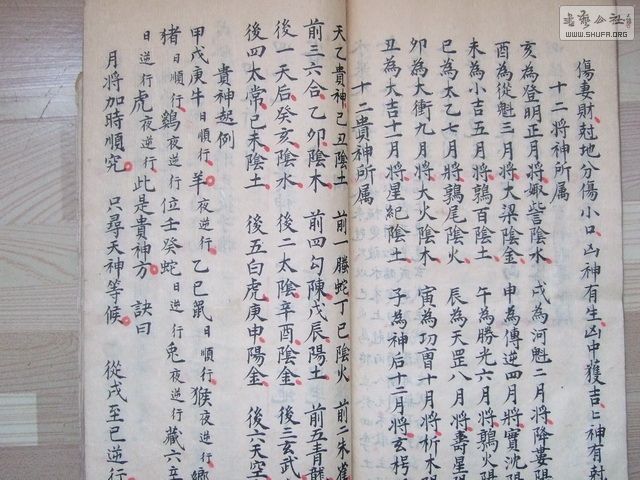 書法公社
WWW.SHUFA.ORG
傷妻財尅地分傷小口凶神有生凶中獲吉吉神有尅
十二將神所属
亥為登明正月將娵訾陰水 戌為河魁二月將降婁陽
酉為從魁三月將大梁陰金 申為傳送四月將實沈陽
未為小吉五月將鶉百陰土 午為勝光六月將鶉火陽
巳為太乙七月將鶉尾陰火 辰為天罡八月將壽星陽
卯為大衝九月將大火陰木 寅為功曹十月將析木陽
丑為大吉十一月將星紀陰土 子為神后十二月將玄枵
十二貴神所属
天乙貴神己丑陰土 前一螣蛇丁巳陰火 前二朱雀
前三六合乙卯陰木 前四勾陳戊辰陽土 前五青龍
後一天后癸亥陰水 後二太陰辛酉陰金 後三玄武
後四太常己未陰土 後五白虎庚申陽金 後六天空
貴神起例
甲戊庚牛日順行羊夜逆行 乙己鼠日順行猴夜逆行
猪日順行鷄夜逆行位壬癸蛇日逆行兎夜逆行藏六辛
日逆行虎夜逆行此是貴神方 訣曰
月將加時順究 只尋天神等候 從戌至巳逆行